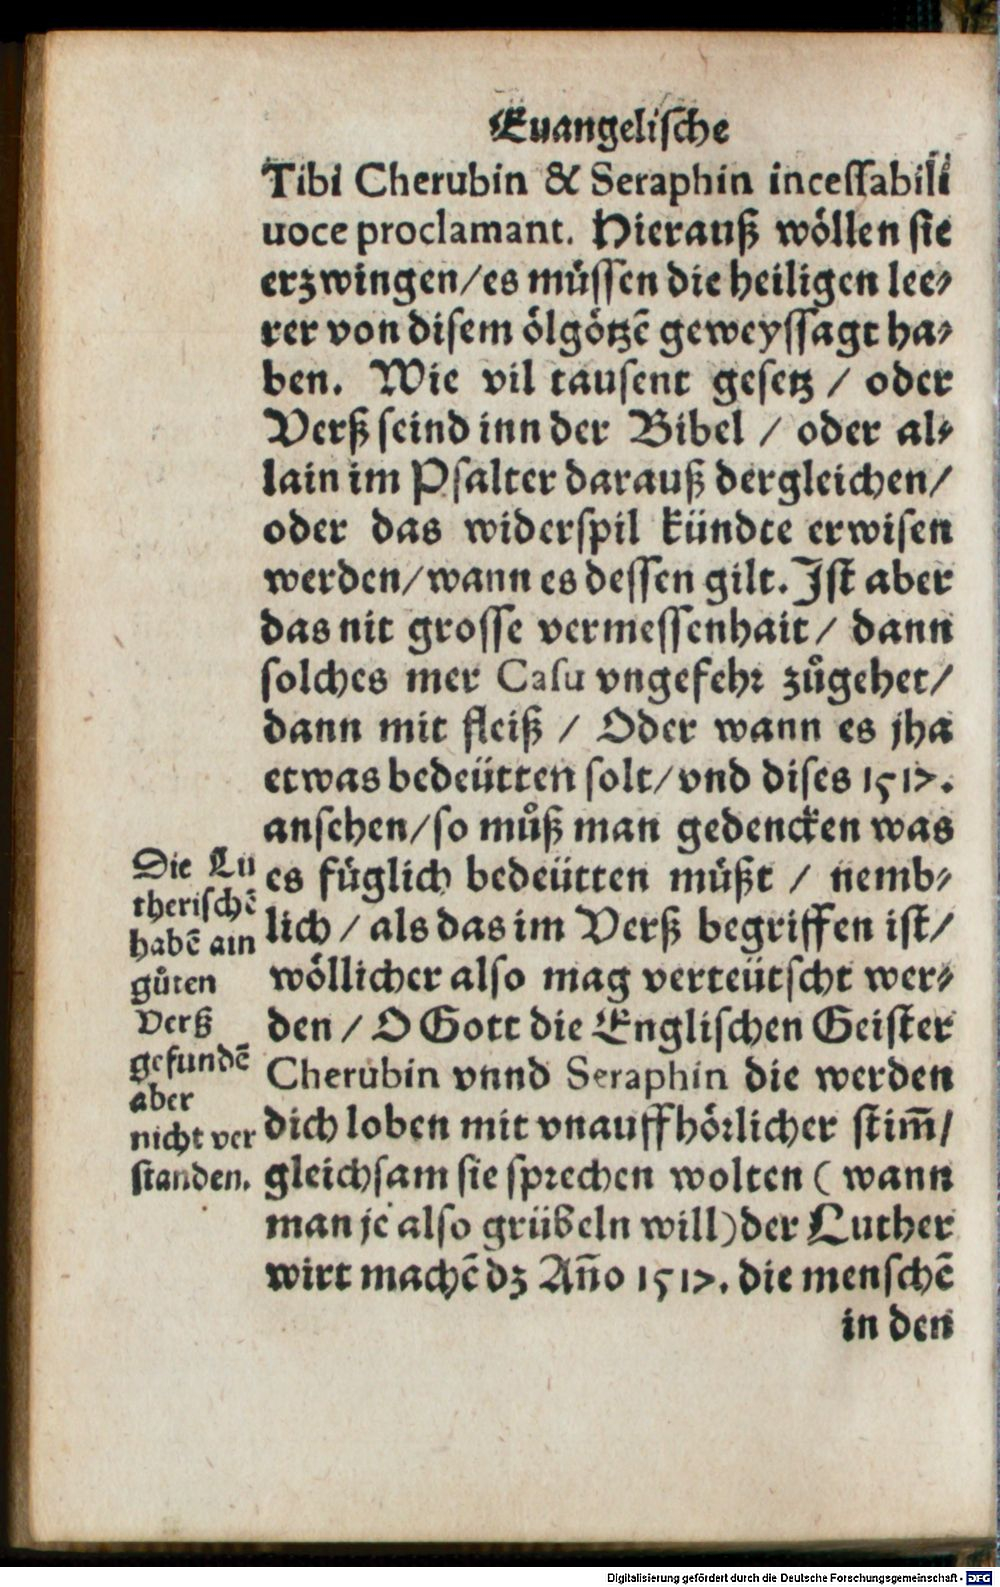 Euangelische
Tibi Cherubin & Seraphin incessabili
uoce proclamant. Hierauß wöllen sie
erzwingen/es müssen die heiligen lee⸗
rer von disem ölgötzē geweyssagt ha⸗
ben. Wie vil tausent gesetz / oder
Verß seind inn der Bibel / oder al⸗
lain im Psalter darauß dergleichen/
oder das widerspil kündte erwisen
werden/wann es dessen gilt. Ist aber
das nit grosse vermessenhait / dann
solches mer Casu vngefehr zůgehet/
dann mit fleiß / Oder wann es jha
etwas bedeütten solt/vnd dises 1517.
ansehen/so můß man gedencken was
es füglich bedeütten müßt / nemb⸗
lich / als das im Verß begriffen ist/
wöllicher also mag verteütscht wer⸗
den / O Gott die Englischen Geister
Cherubin vnnd Seraphin die werden
dich loben mit vnauffhörlicher stim̄/
gleichsam sie sprechen wolten ( wann
man je also grübeln will) der Luther
wirt machē dz An̄o 1517. die menschē
in den
Die Lu
therischē
habē ain
gůten
Verß
gefundē
aber
nicht ver
standen.
Digitalisierung gefördert durch die Deutsche Forschungsgemeinschaft - DFG